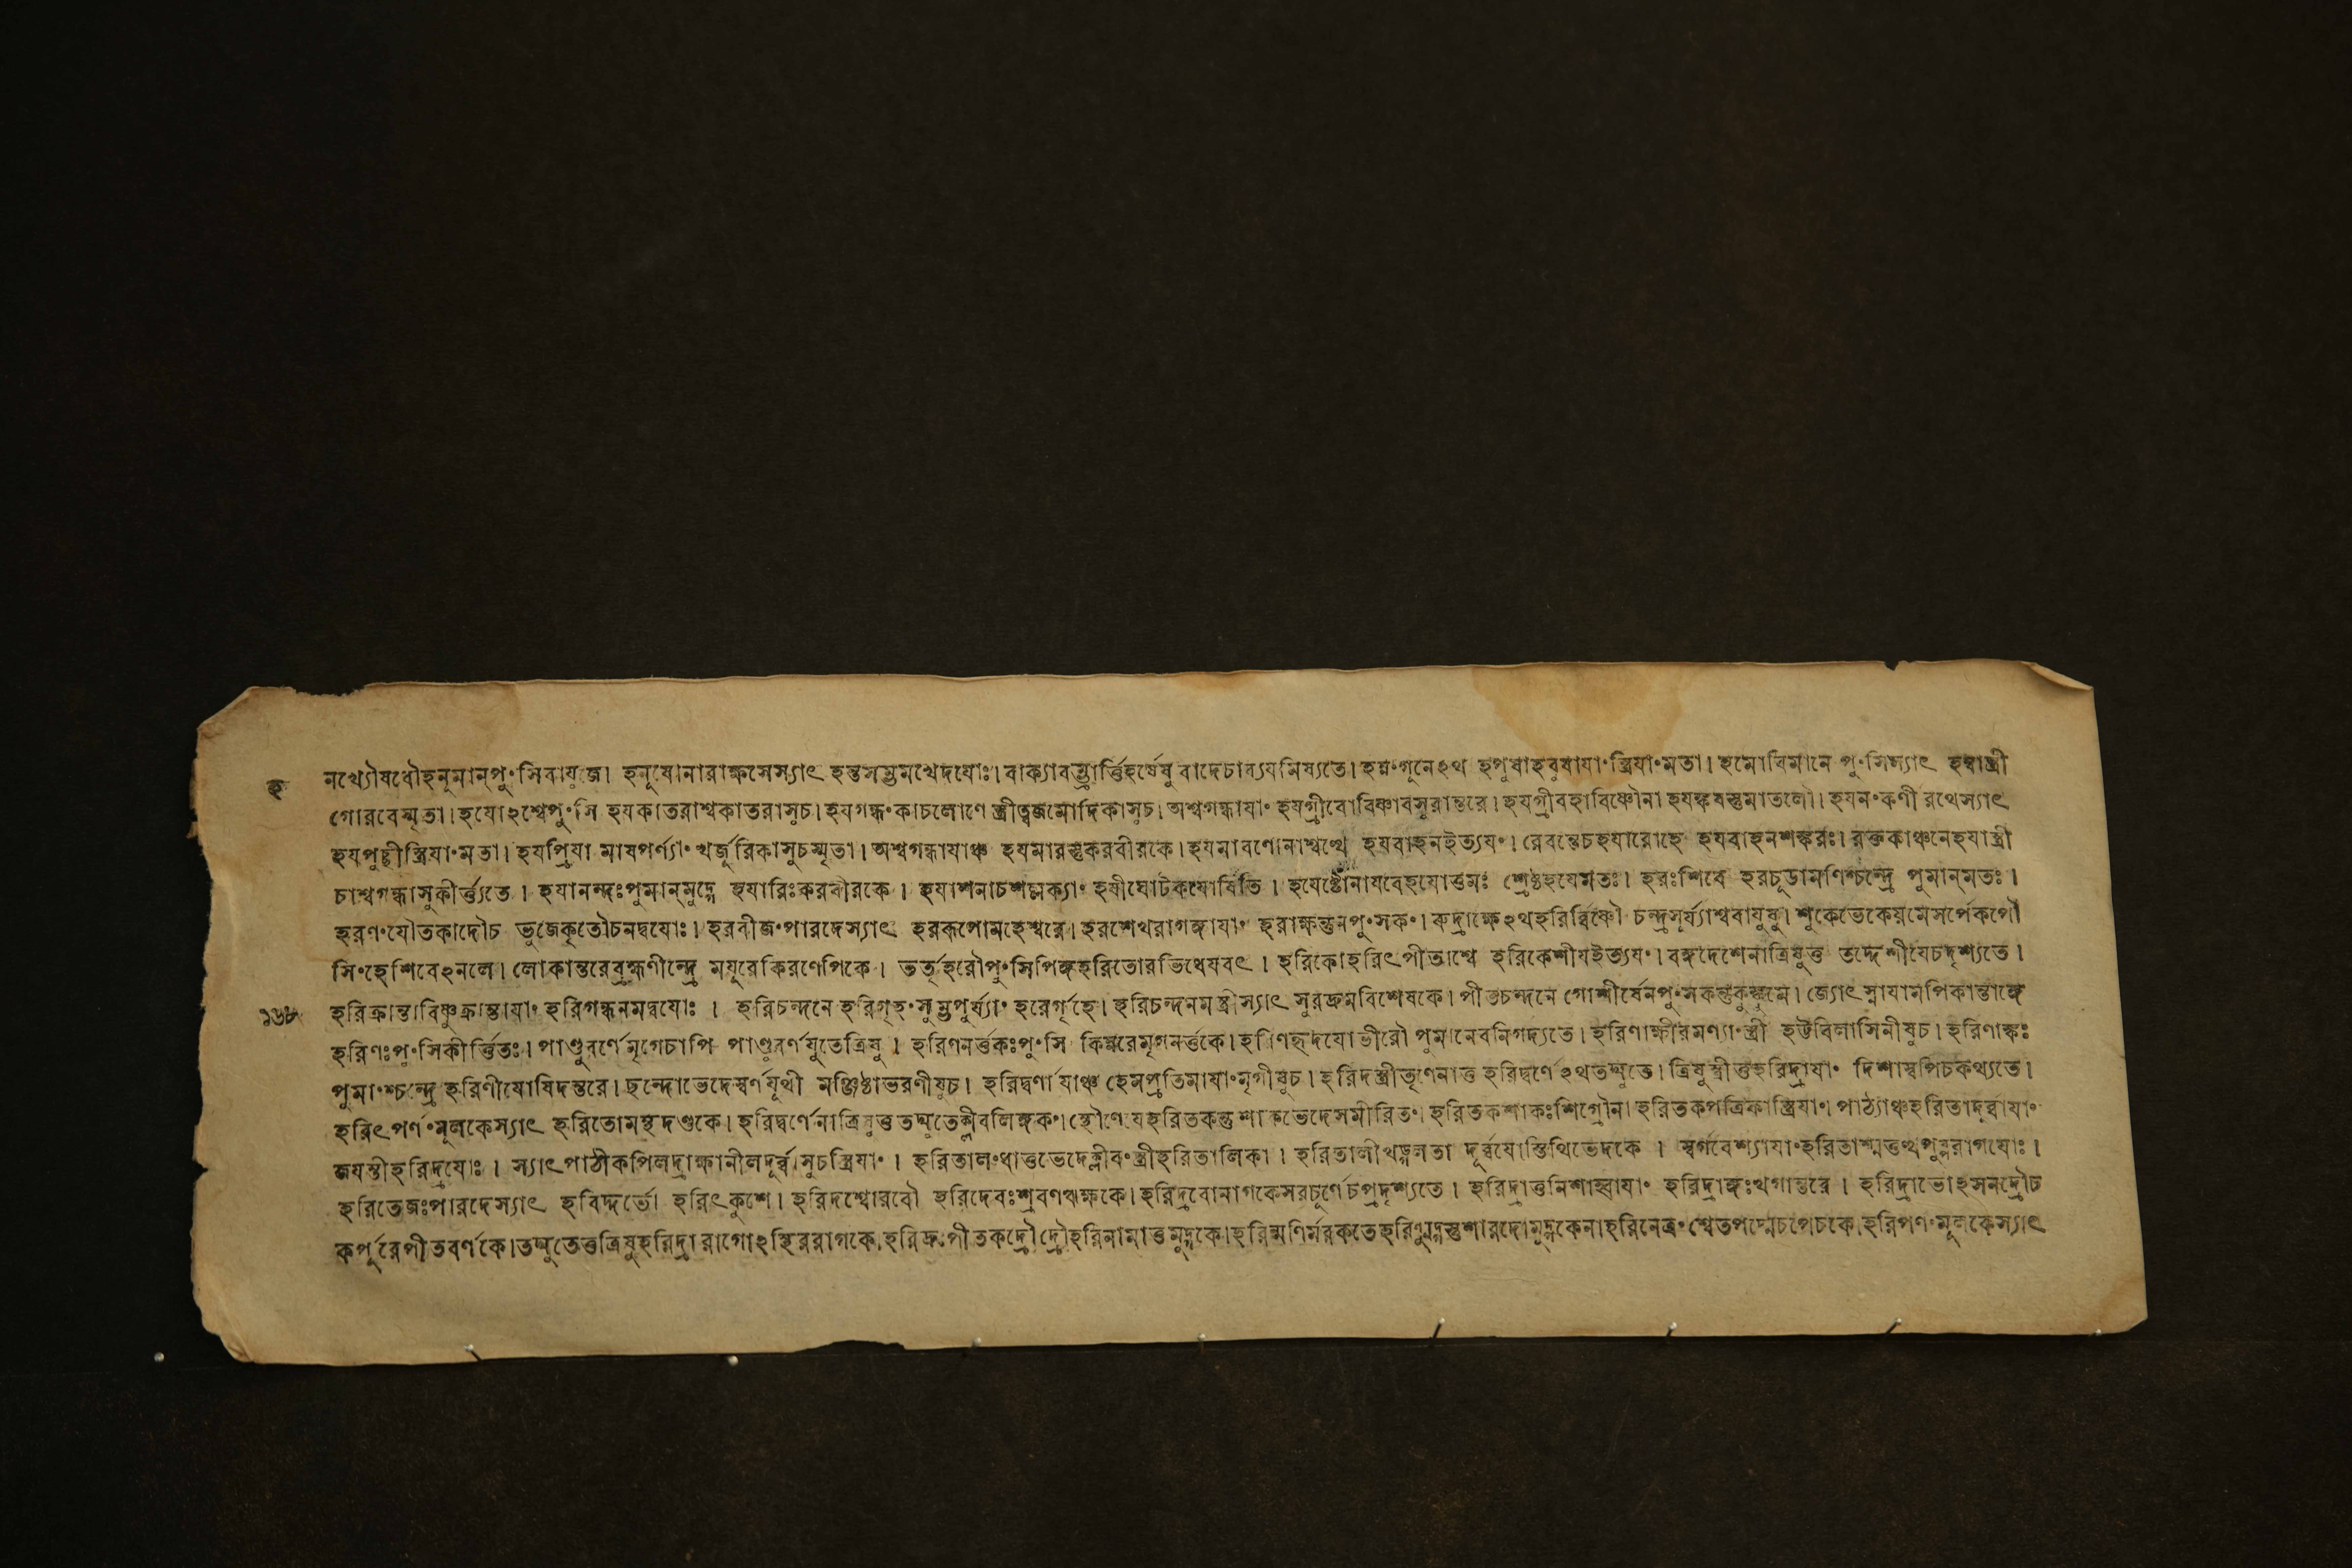 হ নখ্যৌষধৌহনূমান্‌পুংসিবাযুজে। হনূষোনারাক্ষসেস্যাৎ হন্তসম্ভ্রমখেদযোঃ। বাক্যারম্ভার্ত্তিহর্ষেষু বাদেচাব্যযমিষ্যতে। হন্নংগূনেঽথ হপুষাহবুষাযাং স্ত্রিযাংমতা। হমোবিমানে পুংসিস্যাৎ হম্বাস্ত্রী
গোরবেস্মৃতা। হযোঽশ্বেপুংসি হযকাতরাশ্বকাতরাসুচ। হযগন্ধংকাচলোণে স্ত্রীত্বজমোদিকাসুচ। অশ্বগন্ধাযাং হযগ্রীবোবিষ্ণাবসুরান্তরে। হযগ্রীবহাবিষ্ণৌনা হযঙ্কষস্তুমাতলৌ। হযনংকর্ণী রথেস্যাৎ
হযপুচ্ছীস্ত্রিযাংমতা। হযপ্রিযা মাষপর্ণ্যাং খর্জূরিকাসুচস্মৃতা। অশ্বগন্ধাযাঞ্চ হযমারস্তুকরবীরকে। হযমারণোনাশ্বত্থে হযবাহনইত্যযং। রেবন্তেচহযারোহে হযবাহনশঙ্করঃ। রক্তকাঞ্চনেহযাস্ত্রী
চাশ্বগন্ধাসুকীর্ত্ত্যতে। হযানন্দঃপুমান্‌মুদ্গে হযারিঃকরবীরকে। হযাশনাচশল্লক্যাং হযীঘোটকযোষিতি। হযেষ্টোনাযবেহযোত্তমঃ শ্রেষ্ঠহযেমতঃ। হরঃশিবে হরচূডামণিশ্চন্দ্রে পুমান্‌মতঃ।
হরণংযৌতকাদৌচ ভুজেকৃতৌচনদ্বযোঃ। হরবীজংপারদেস্যাৎ হররূপোমহেশ্বরে। হরশেখরাগঙ্গাযাং হরাক্ষন্তুনপুংসকং। রুদ্রাক্ষেঽথহরির্ব্বিষ্ণৌ চন্দ্রসূর্য্যাশ্ববাযুষু। শুকেভেকেযমেসর্পেকপৌ
সিংহেশিবেঽনলে। লোকান্তরেব্রহ্মণীন্দ্রে মযূরেকিরণেপিকে। ভর্তৃহরৌপুংসিপিঙ্গহরিতোরভিধেযবৎ। হরিকোহরিৎপীতাশ্বে হরিকেশীযইত্যযং। বঙ্গদেশেনাত্রিষুত্ত তদ্দেশীযেচদৃশ্যতে।
১৬৮ হরিক্রান্তাবিষ্ণুক্রান্তাযাং হরিগন্ধনমদ্বযোঃ। হরিচন্দনে হরিগৃহংসুম্ভপুর্য্যাং হরের্গৃহে। হরিচন্দনমস্ত্রীস্যাৎ সুরদ্রুমবিশেষকে। পীতচন্দনে গোশীর্ষেনপুংসকন্তুকুঙ্কুমে। জ্যোৎস্নাযামপিকান্তাঙ্গে
হরিণঃপুংসিকীর্ত্তিতঃ। পাণ্ডুরর্ণেমৃগেচাপি পাণ্ডুরর্ণযুতেত্রিষু। হরিণনর্ত্তকঃপুংসি কিন্নরেমৃগনর্ত্তকে। হরিণহৃদযোভীরৌ পুমানেবনিগদ্যতে। হরিণাক্ষীরমণ্যাংস্ত্রী হট্টবিলাসিনীষুচ। হরিণাঙ্কঃ
পুমাংশ্চন্দ্রে হরিণীযোষিদন্তরে। ছন্দোভেদেস্বর্ণযূথী মঞ্জিষ্ঠাভরণীষুচ। হরিদ্বর্ণাযাঞ্চ হেমপ্রতিমাযাংমৃগীষুচ। হরিদস্ত্রীতৃণেনাত্ত হরিদ্বর্ণেঽথতদ্যুতে। ত্রিষুস্ত্রীত্তহরিদ্রাযাং দিশাস্বপিচকথ্যতে।
হরিৎপর্ণংমূলকেস্যাৎ হরিতোমন্থদণ্ডকে। হরিদ্বর্ণেনাত্রিষুত্ত তদ্যুতেক্লীবলিঙ্গকং। স্থৌণেযহরিতকন্তুশাকভেদেসমীরিতং। হরিতকশাকঃশিগ্রৌনা হরিতকপত্রিকাস্ত্রিযাং। পাঠ্যাঞ্চহরিতাদূর্ব্বাযাং
জযন্তীহরিদ্রযোঃ। স্যাৎপাঠীকপিলদ্রাক্ষানীলদূর্ব্বাসুচস্ত্রিযাং। হরিতালংধাত্তভেদেক্লীবংস্ত্রীহরিতালিকা। হরিতালীখড়্গলতা দূর্ব্বযোস্তিথিভেদকে। স্বর্গবেশ্যাযাংহরিতাশ্মত্তত্থপুষ্পরাগযোঃ।
হরিতেজঃপারদেস্যাৎ হরিদ্দর্ভো হরিৎকুশে। হরিদশ্বোরবৌ হরিদেবঃশ্রবণঋক্ষকে। হরিদ্রবোনাগকেসরচূর্ণেচপ্রদৃশ্যতে। হরিদ্রাত্তনিশাহ্বাযাং হরিদ্রাঙ্গঃখগান্তরে। হরিদ্রাভোঽসনদ্রৌচ
কর্পূরেপীতবর্ণকে। তদ্যুতেত্তত্রিষুহরিদ্রারাগোঽস্থিররাগকে। হরিদ্রুঃপীতকদ্রৌদ্রৌহরিনামাত্তমুদ্গকে। হরিন্মণির্মরকতেহরিণ্মুদ্গস্তুশারদো। মুদ্গকেনাহরিনেত্রং শ্বেতপদ্মেচপেচকে। হরিপর্ণংমূলকেস্যাৎ